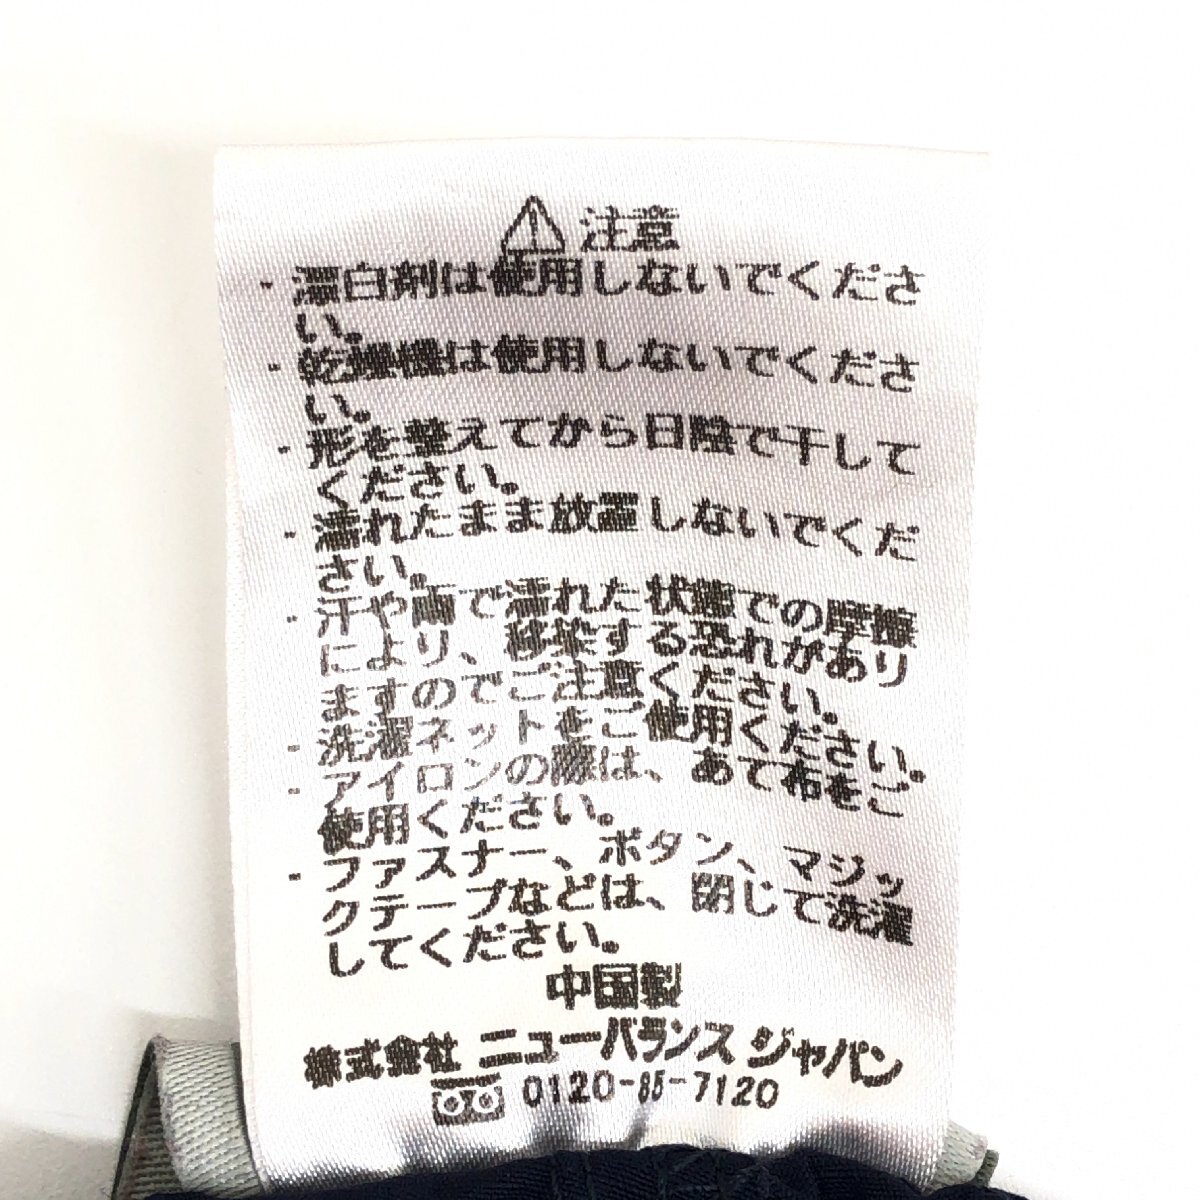 ⚠ 注意
・漂白剤は使用しないでくださ
い。
・乾燥機は使用しないでくださ
い。
・形を整えてから日陰で干して
ください。
・濡れたまま放置しないでくだ
さい。
・汗や雨で濡れた状態での摩擦
により、移染する恐れがあり
ますのでご注意ください。
・洗濯ネットをご使用ください。
・アイロンの際は、あて布をご
使用ください。
・ファスナー、ボタン、マジッ
クテープなどは、閉じて洗濯
してください。
中国製
株式会社 ニューバランス ジャパン
0120-85-7120